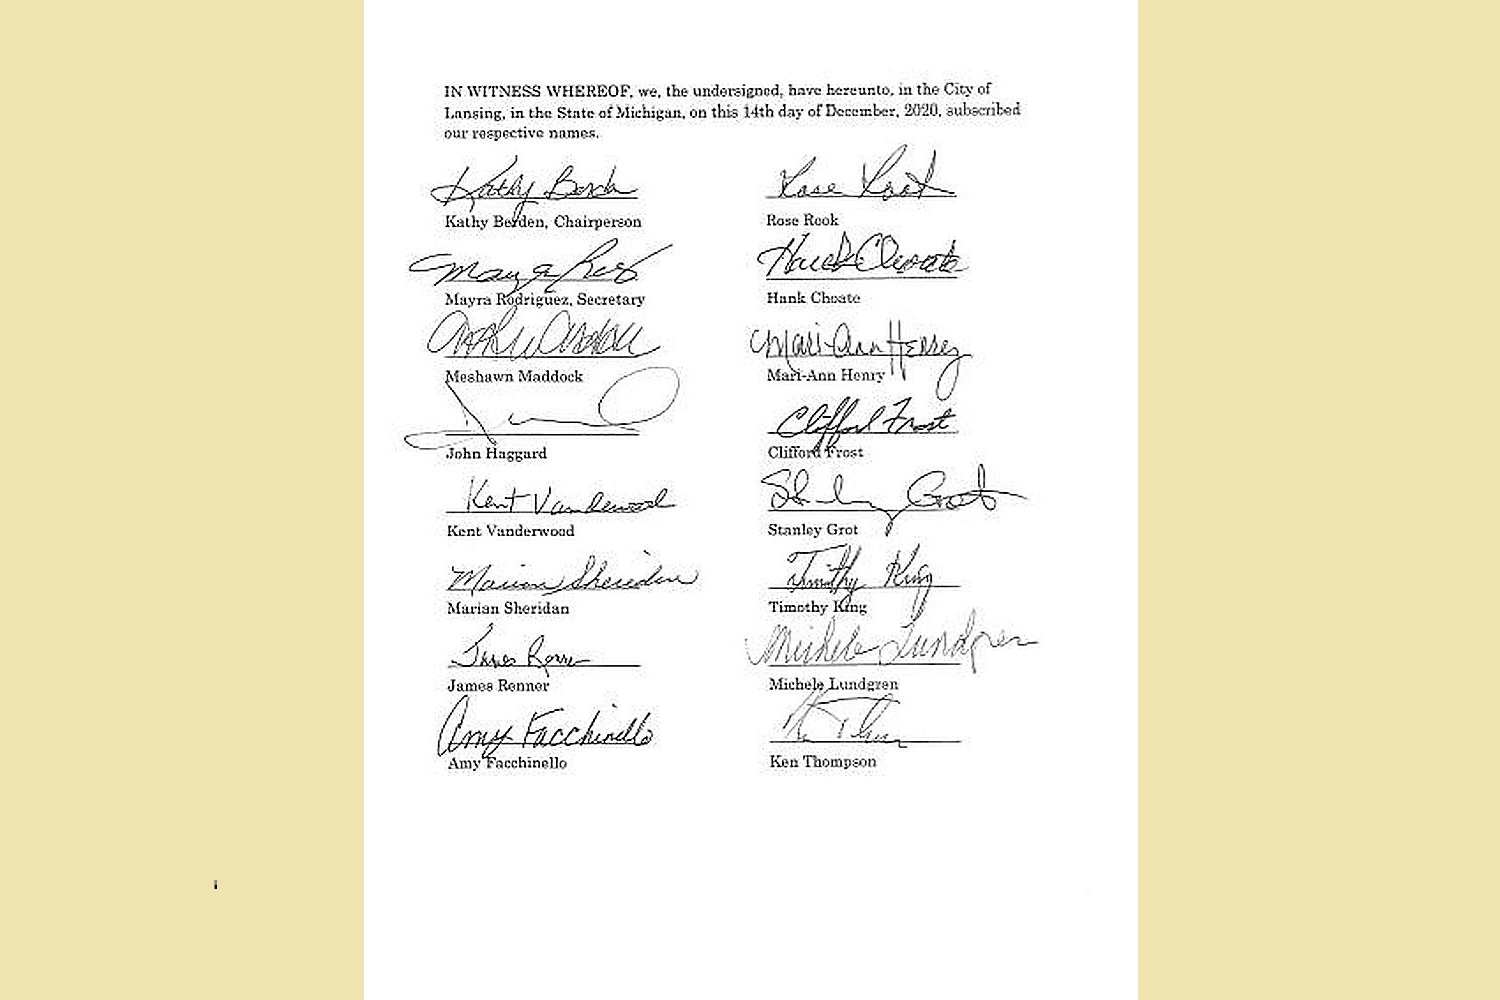 IN WITNESS WHEREOF, we, the undersigned, have hereunto, in the City of
Lansing, in the State of Michigan, on this 14th day of December, 2020, subscribed
our respective names.
Kathy Berden
Kathy Berden, Chairperson
Mayra
Mayra Rodriguez, Secretary
Meshawn Maddock
John Haggard
Kent Vanderwood
Kent Vanderwood
Marian Sheridan
Marian Sheridan
James Renner
James Renner
Amy Facchinello
Amy Facchinello
Rose Rook
Rose Rook
Hank Choate
Hank Choate
Mari-Ann Henry
Mari-Ann Henry
Clifford Frost
Clifford Frost
Stanley Grot
Stanley Grot
Timothy King
Timothy King
Michele Lundgren
Michele Lundgren
Ken Thompson